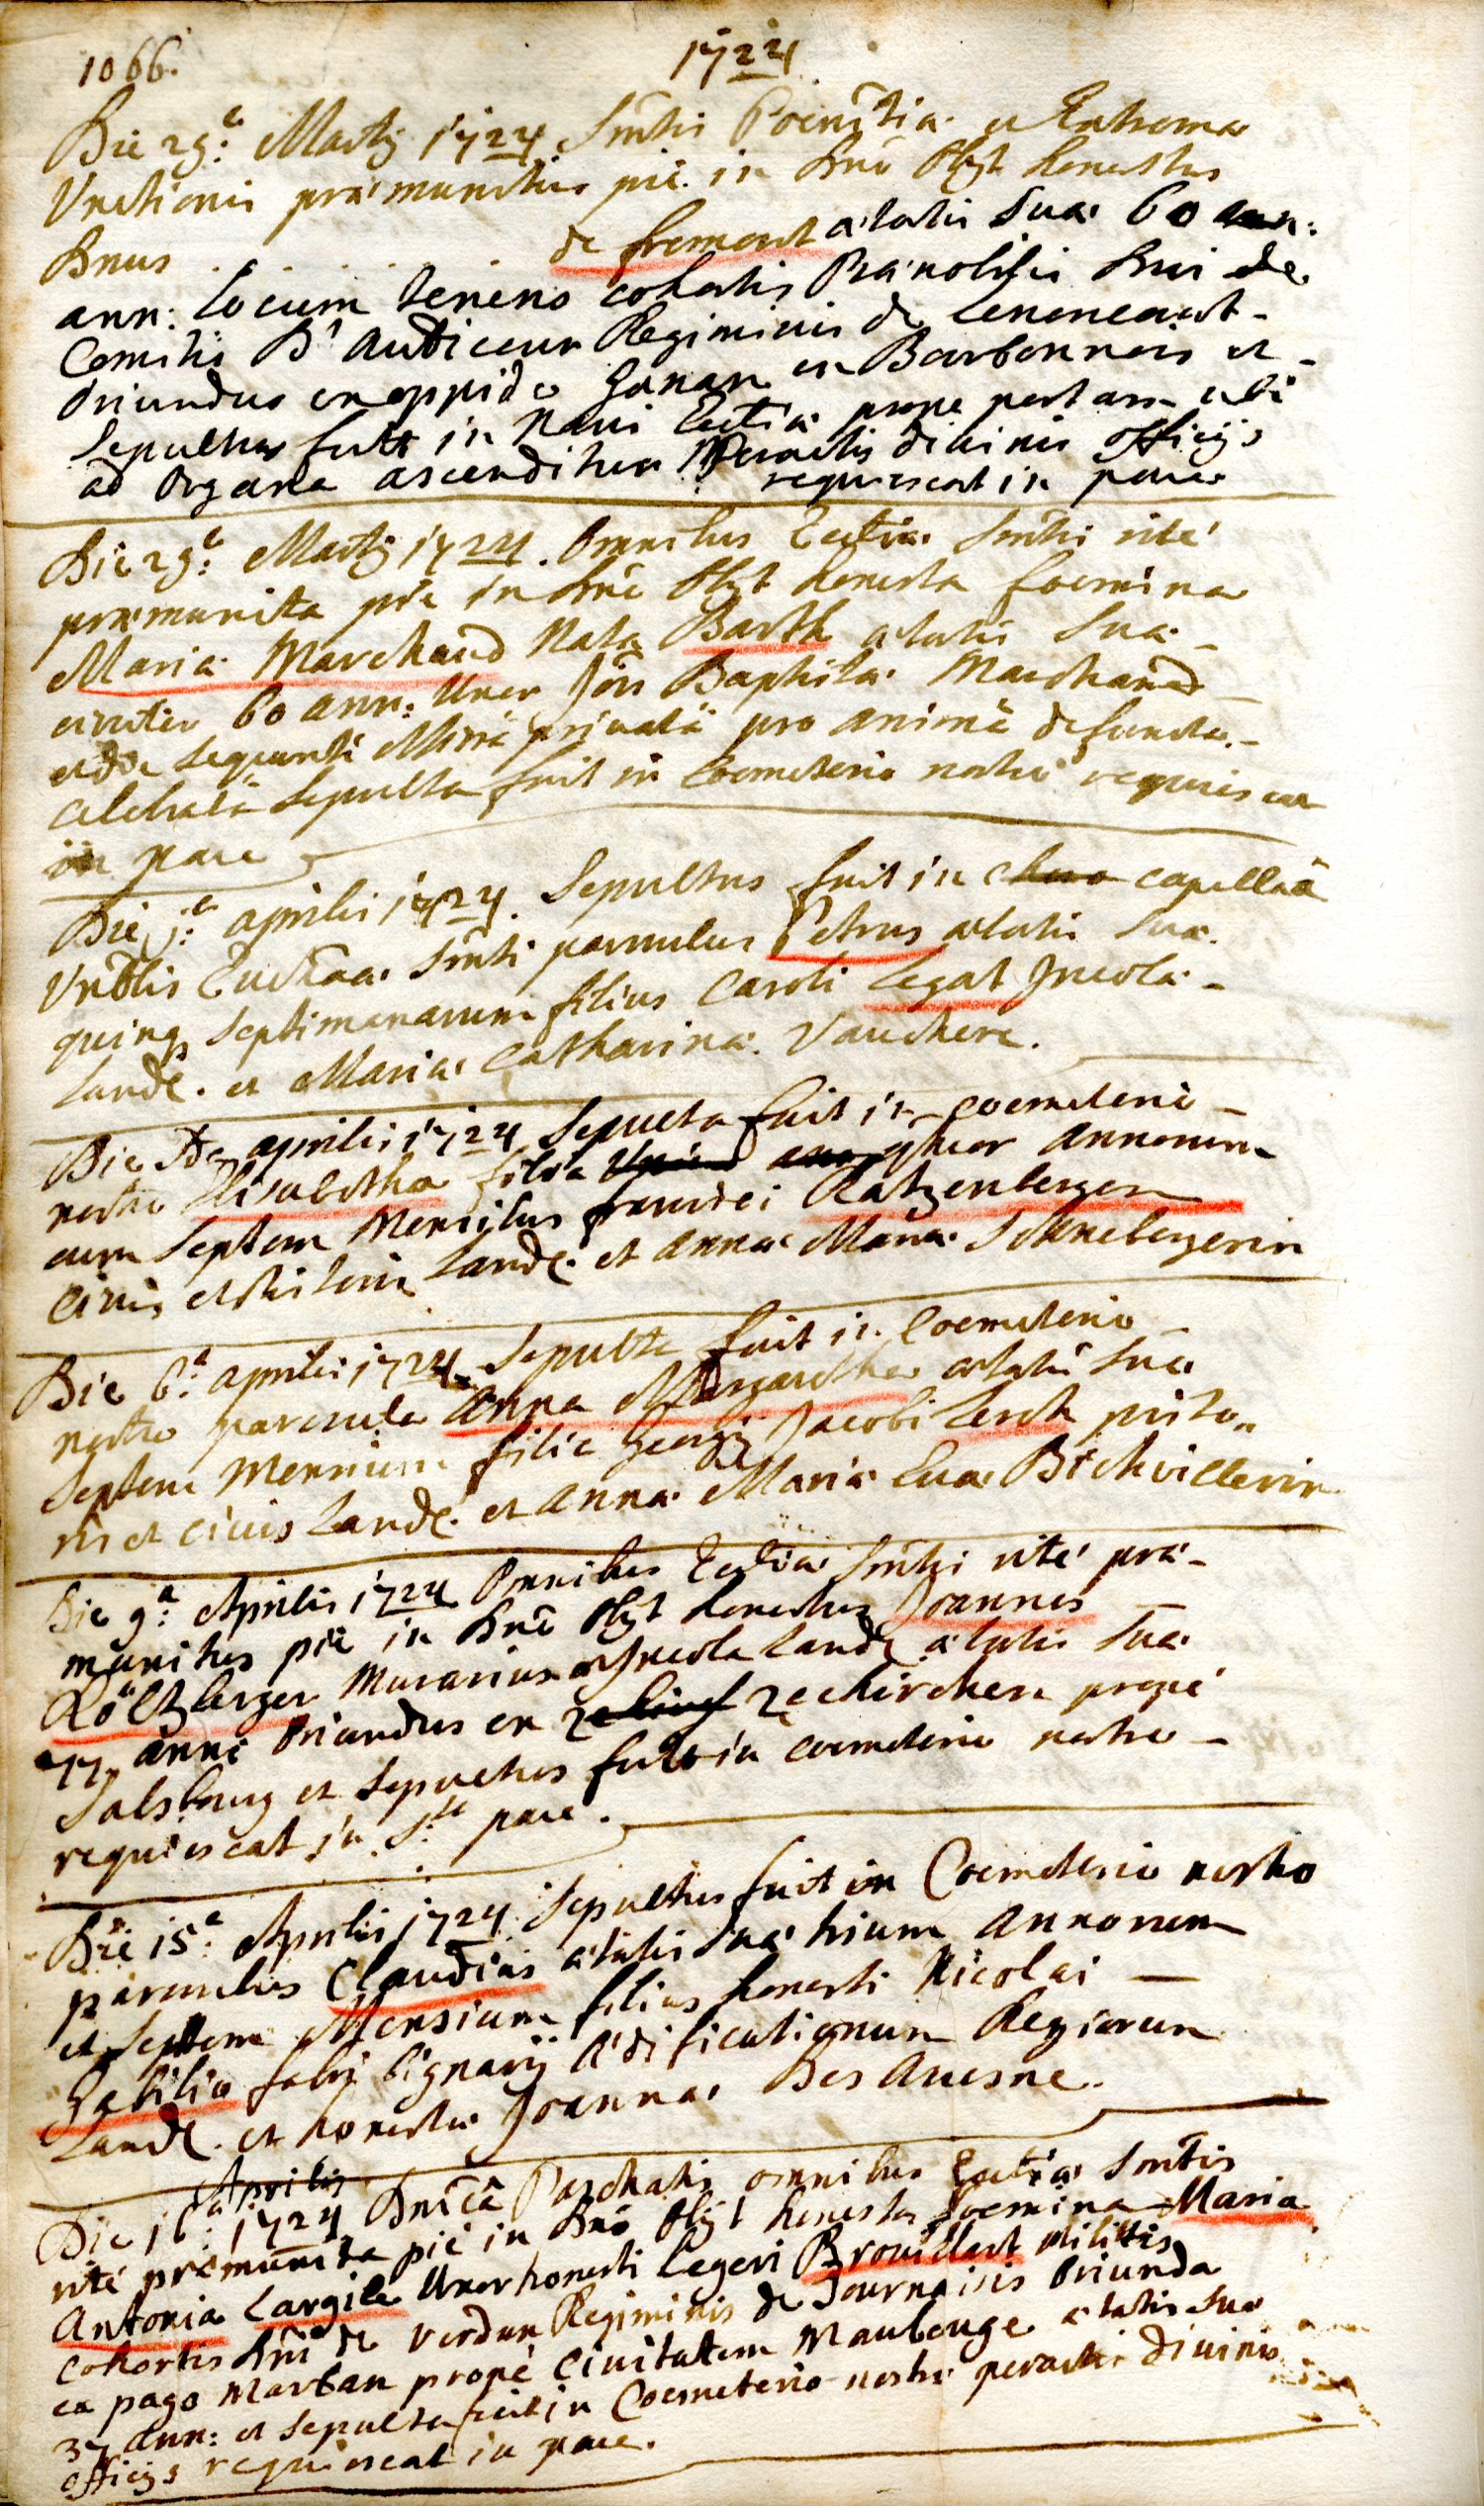 1066.
1724
Die 29.ª Martij 1724 Smtis Poenitîa et Extrema
Unctionis præmunitus pie in Dnô Obijt honestus
Dnus . . . . . . de fremont ætatis Suæ 60
ann: Locum tenens cohortis Prænobilis Dni de
Comitis D' Regiminis de Lenoncourt -
Oriundus ex oppido Ganan en Barbonnois et -
Sepultus fuit in Navi Ecctiæ prope portam ubi
ad Organa ascenditur Peractis diuinis officijs
requiescat in pace
Die 29.ª Martij 1724. Omnibus Ecctiæ Smtis rite
præmunita pie in Dnô Obijt honesta foemina
Maria Marchand Nata Barth ætatis Suæ -
circiter 60 ann: Uxor Jôis Baptistæ Marchand -
et die Sequenti Missâ privatâ pro animâ defunctæ -
celebratâ Sepulta fuit in Coemeterio nostro requiescat
in pace
Die j.ª aprilis 1724. Sepultus fuit in capellâ
Smti parvulus Petrus ætatis Suæ
quinq septimanarum filius Caroli Legat Jncolæ -
Landæ. et Mariæ Catharinæ Vauchere.
Die aprilis 1724 Sepulta fuit in coemeterio -
nostro Elisabetha filia quor annorum
cum Septem Mensibus Ratzenberger
Civis et Landæ. et Annæ Mariæ Schnebergerin
Die 6.ª aprilis 1724 Sepulta fuit in Coemeterio -
nostro parvula Anna Margaretha ætatis Suæ
Septem Mensium filia Georgij Jacobi Lerch pisto„
ris et civis Landæ. et Annæ Mariæ Euæ Bichvillerin
Die 9.ª Aprilis 1724 Omnibus Ecctiæ Smtis rite præ-
munitus pie in Dnô Obijt honestus Joannes -
Röltzberger Murarius et Jncola Landæ ætatis Suæ
77 anni Oriundus ex Zechirchen prope
Salsburg et Sepultus fuit in coemeterio nostro -
requiescat in S.ta pace.
Die 15.ª Aprilis 1724 Sepultus fuit in Coemeterio nostro
parvulus Claudius ætatis Suæ trium Annorum
et Septem Mensium filius honesti Nicolai -
Gabilio fabrj lignarij Ædificationum Regiarum
Landæ. et honestæ Joannæ Des Auesne.
Aprilis
Die 16.ª 1724 Dnicâ Paschatis omnibus Ecctiæ Smtis
rite præmunita pie in Dnô Obijt honesta foemina Maria
Antonia Largile Uxor honesti Legeri Brouillart Militis
cohortis Dni de Verdun Regiminis de Tournaisis Oriunda
ex pago Marban propè Civitatem Maubeuge ætatis Suæ
37 Ann: et Sepulta fuit in Coemeterio nostro peractis diuinis
officijs requiescat in pace.